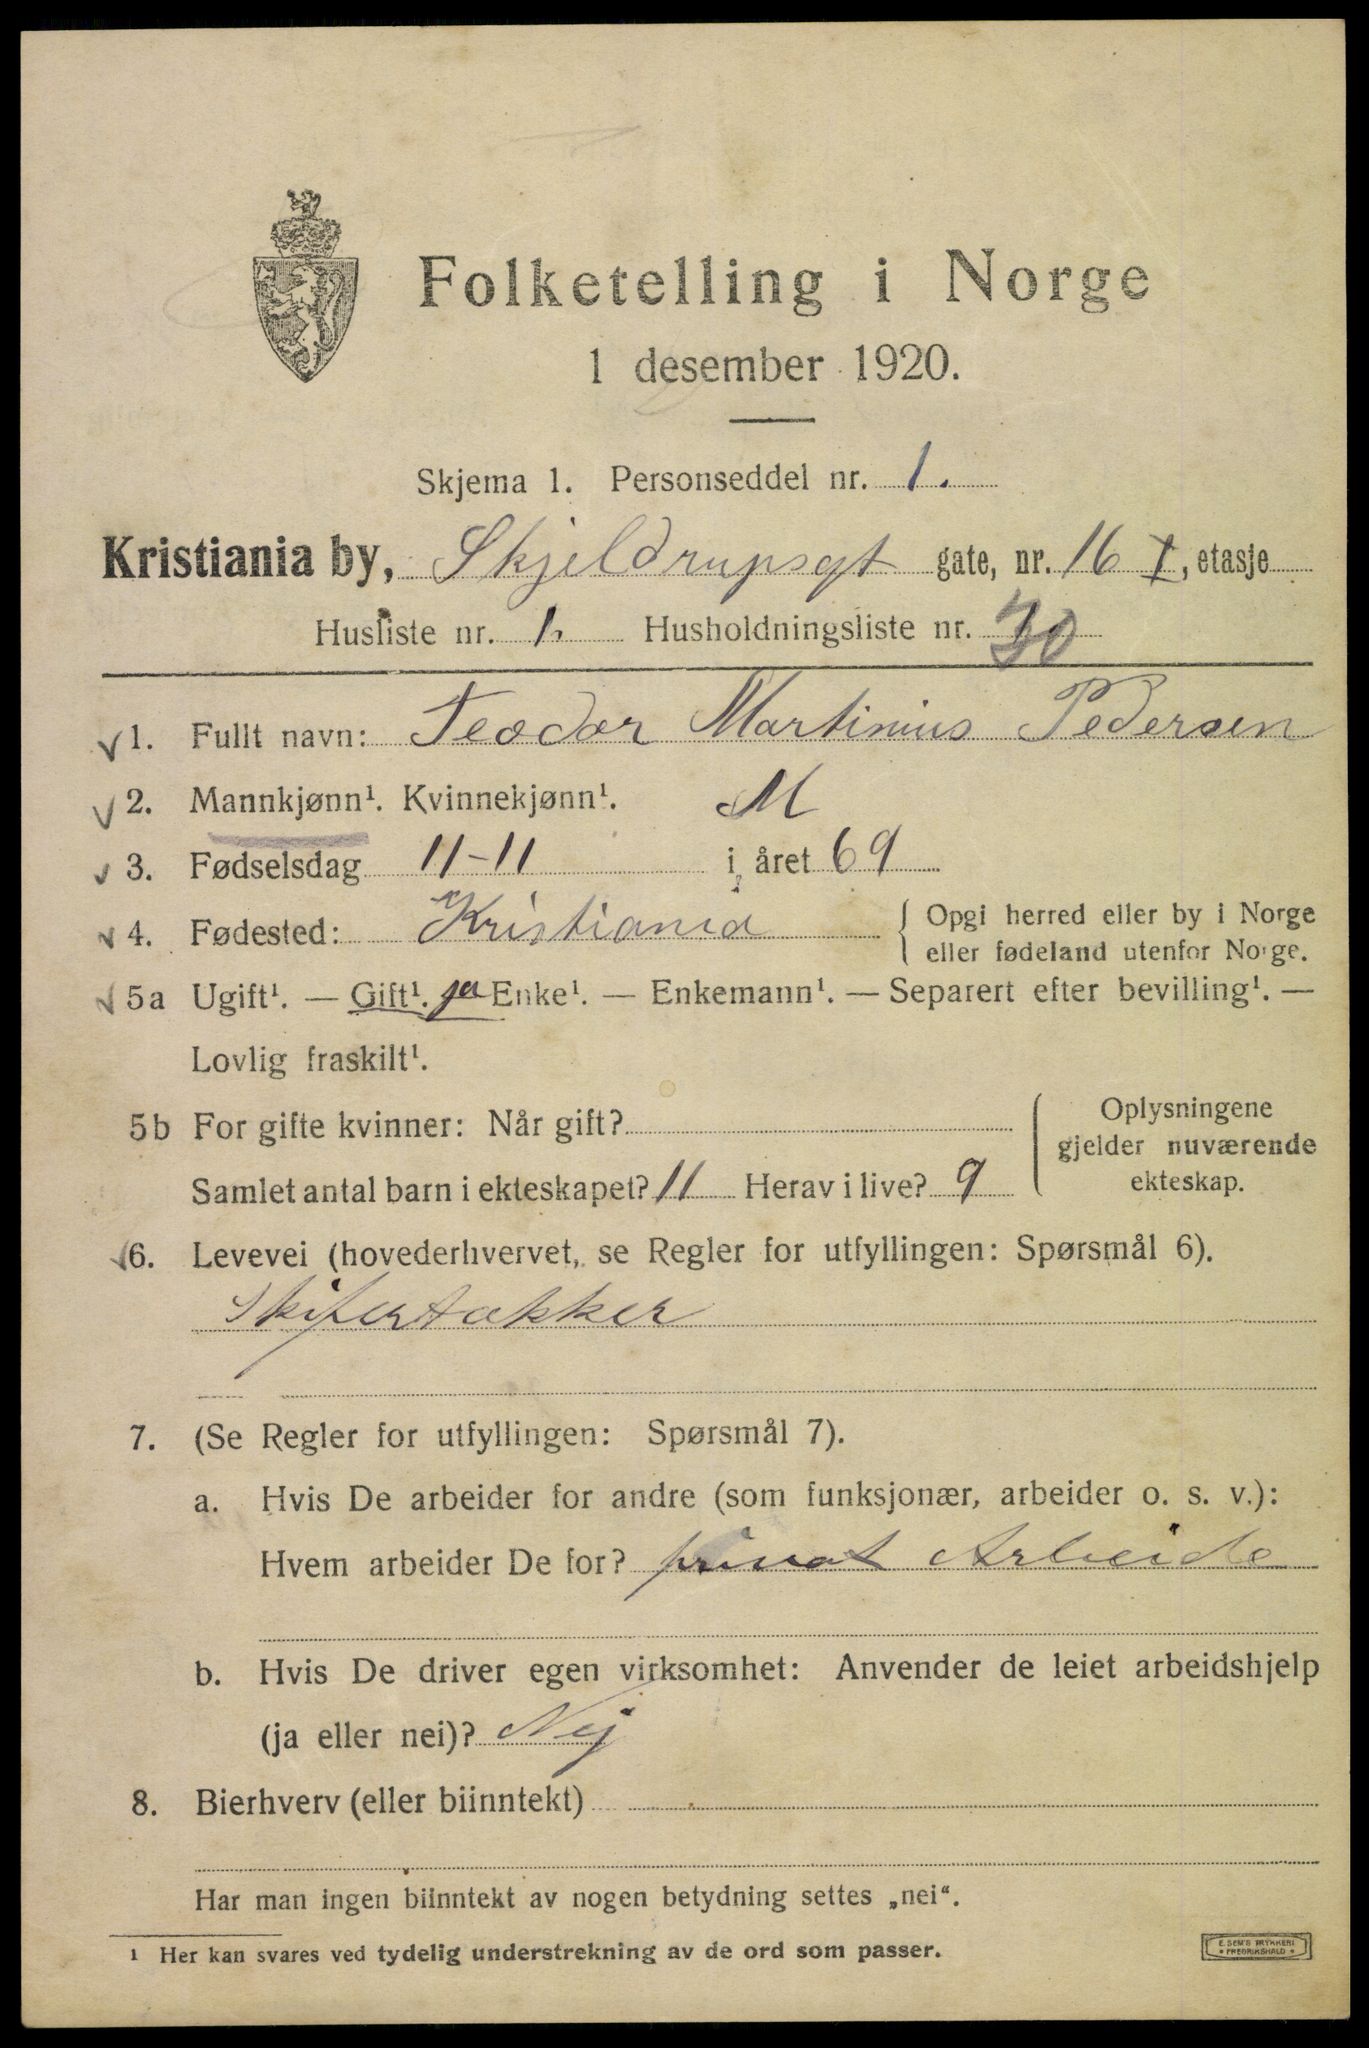 Folketelling i Norge
1 desember 1920.
Skjema 1. Personseddel nr. 1.
Kristiania by, Skjeldrupsgt gate, nr. 16 I, etasje
Husliste nr. 1. Husholdningsliste nr. 30
1. Fullt navn: Teodor Martinius Pedersen
2. Mannkjønn¹. Kvinnekjønn¹. M
3. Fødselsdag 11-11 i året 69
4. Fødested: Kristiania { Opgi herred eller by i Norge
eller fødeland utenfor Norge.
5a Ugift¹. — Gift¹. ja Enke¹. — Enkemann¹. — Separert efter bevilling¹. —
Lovlig fraskilt¹.
5b For gifte kvinner: Når gift?
Samlet antal barn i ekteskapet? 11 Herav i live? 9
Oplysningene
gjelder nuværende
ekteskap.
6. Levevei (hovederhvervet, se Regler for utfyllingen: Spørsmål 6).
Skifertækker
7. (Se Regler for utfyllingen: Spørsmål 7).
a. Hvis De arbeider for andre (som funksjonær, arbeider o. s. v.):
Hvem arbeider De for? privat Arbeide
b. Hvis De driver egen virksomhet: Anvender de leiet arbeidshjelp
(ja eller nei)? Nej
8. Bierhverv (eller biinntekt)
Har man ingen biinntekt av nogen betydning settes „nei“.
¹ Her kan svares ved tydelig understrekning av de ord som passer.
E. SEM'S TRYKKERI
• FREDRIKSHALD •